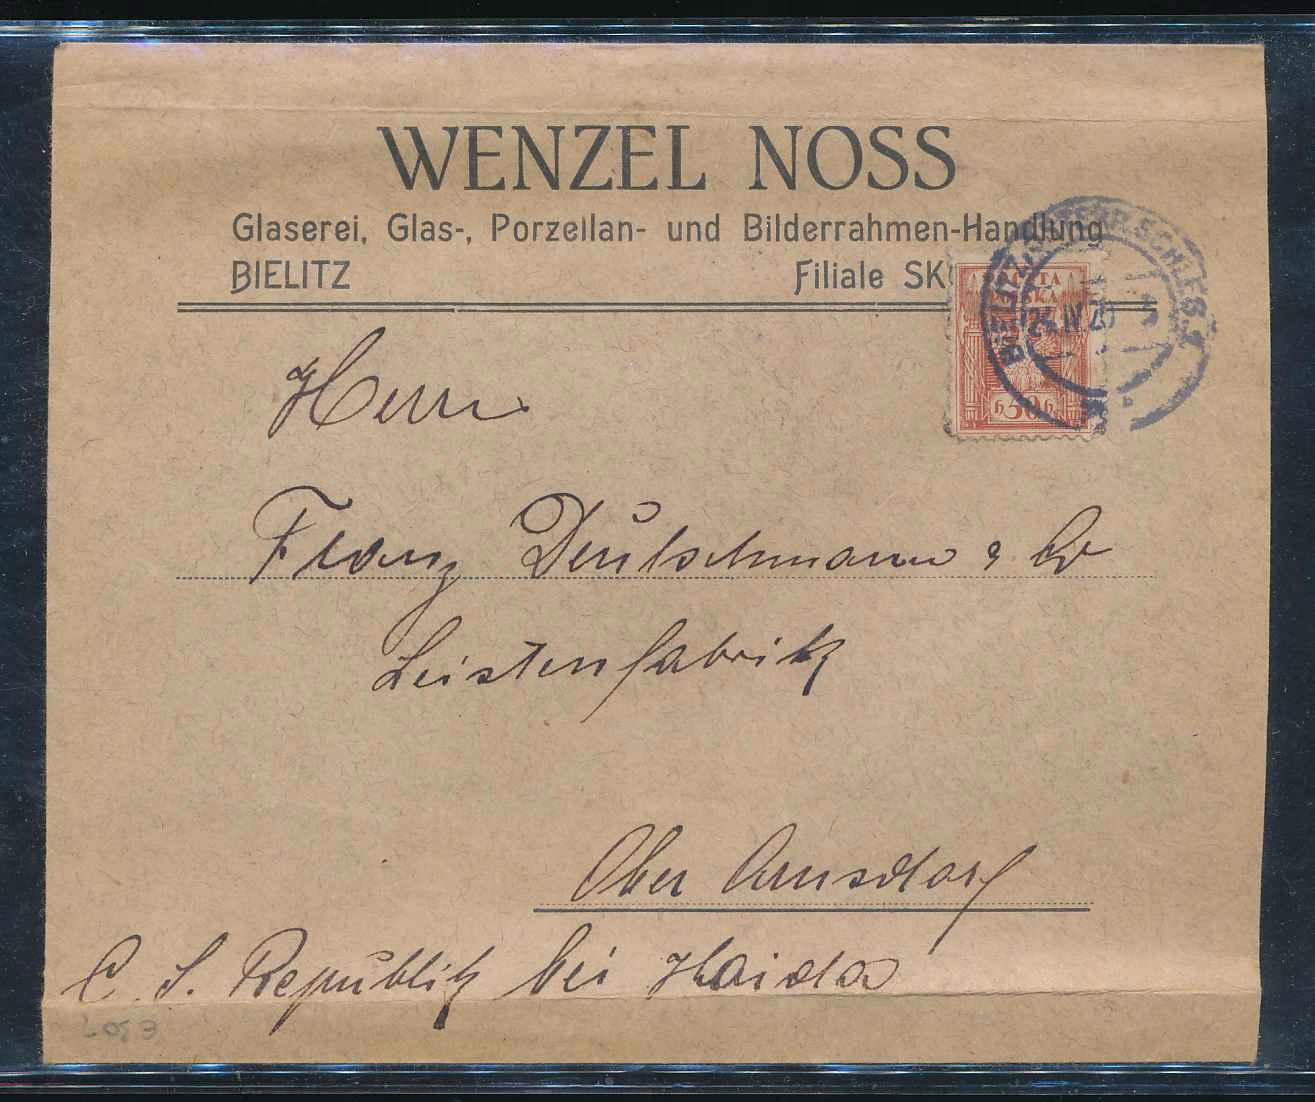 WENZEL NOSS
Glaserei, Glas-, Porzellan- und Bilderrahmen-Handlung
BIELITZ Filiale
POCZTA
POLSKA
h 50 h
BIELITZ IN ÖSTERR. SCHLES. 1
IV 20
Herrn
Franz Deutschmann & Co
Leistenfabrik
Ober Arnsdorf
C. S. Republik bei Haida